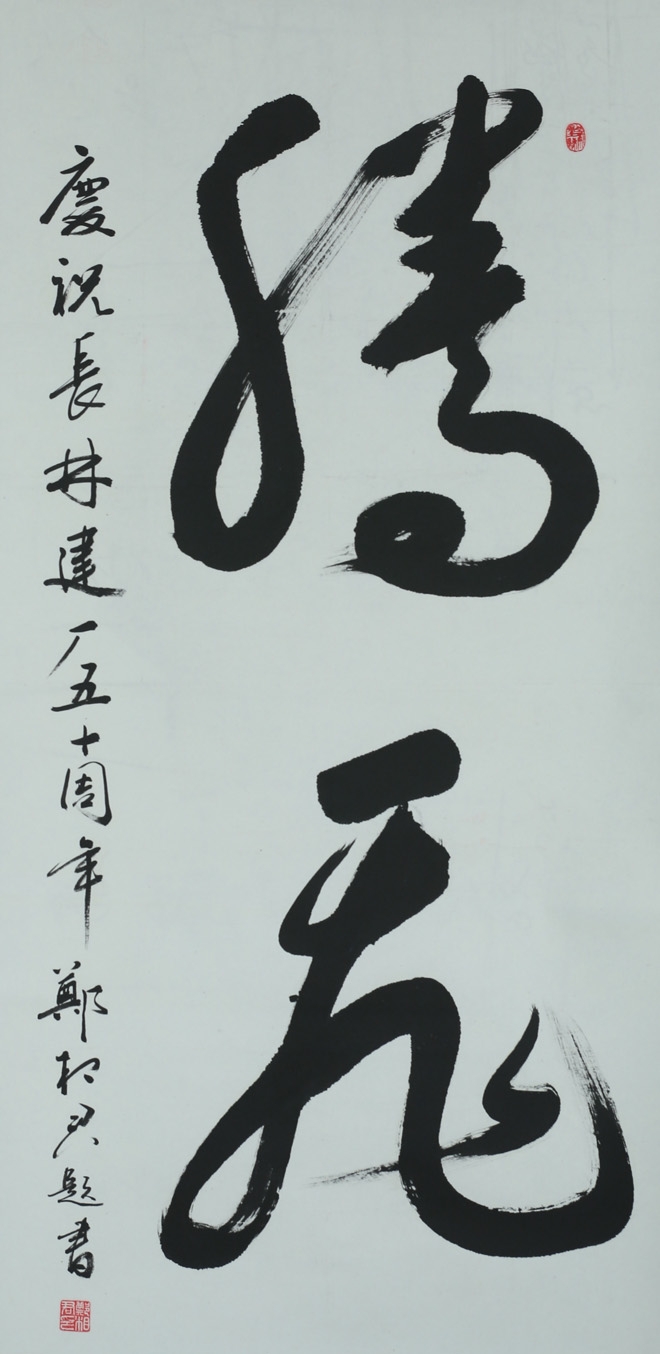 騰飛
慶祝長林建厂五十周年鄭相君題書
鄭相君印